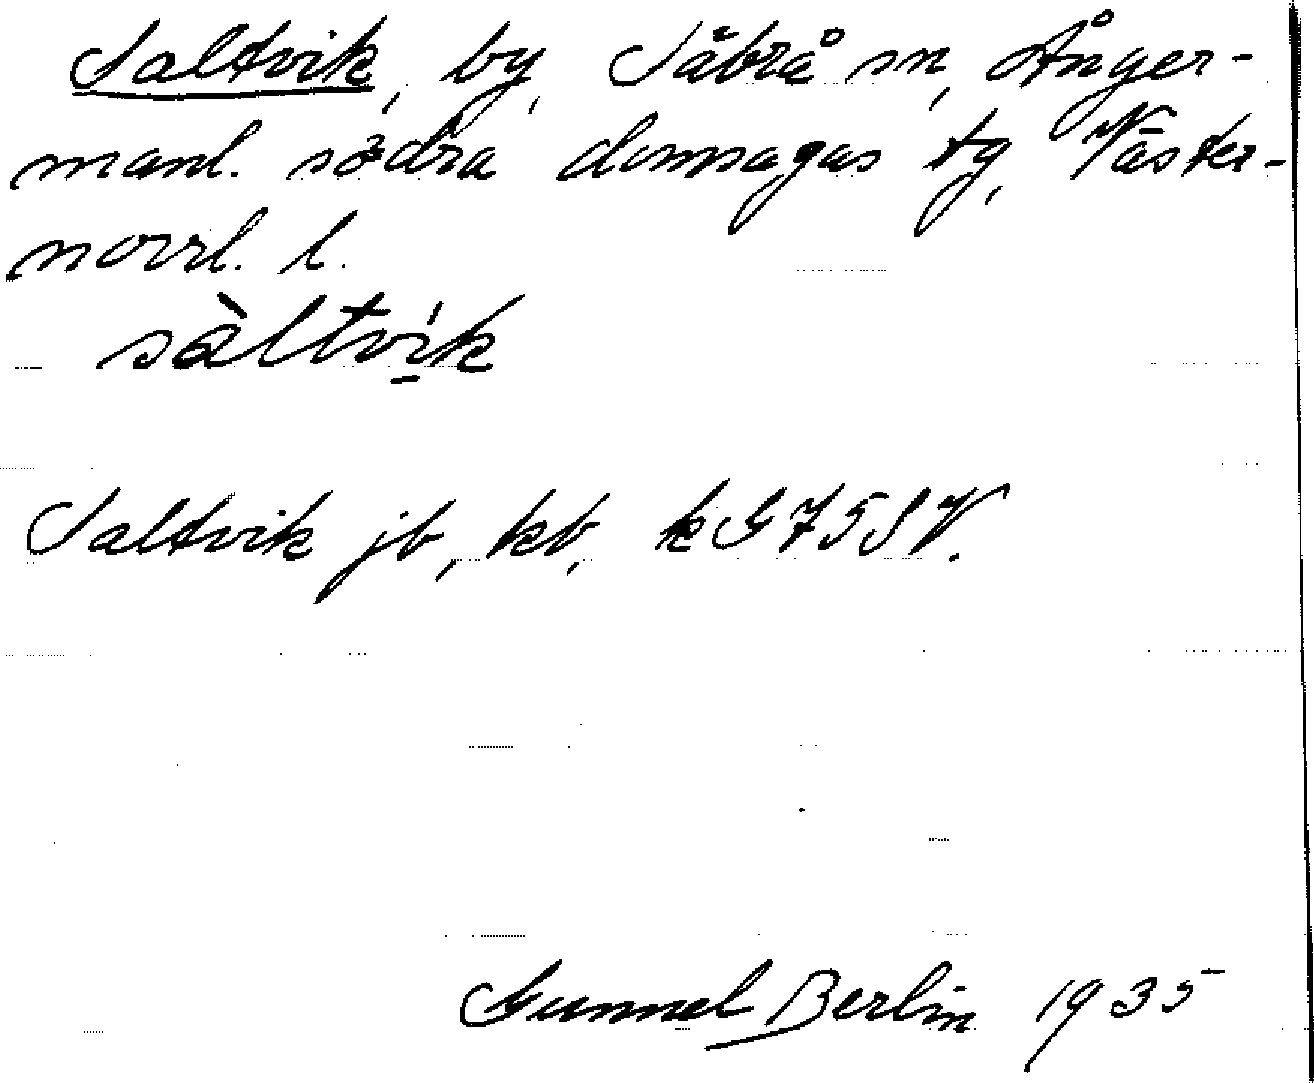 Saltvik, by, Säbrå sn, Ånger-
manl. södra domsagas tg, Väster-
norrl. l.
sàltvi̱k
Saltvik jb, kb, kG75SV.
Gunnel Berlin 1935